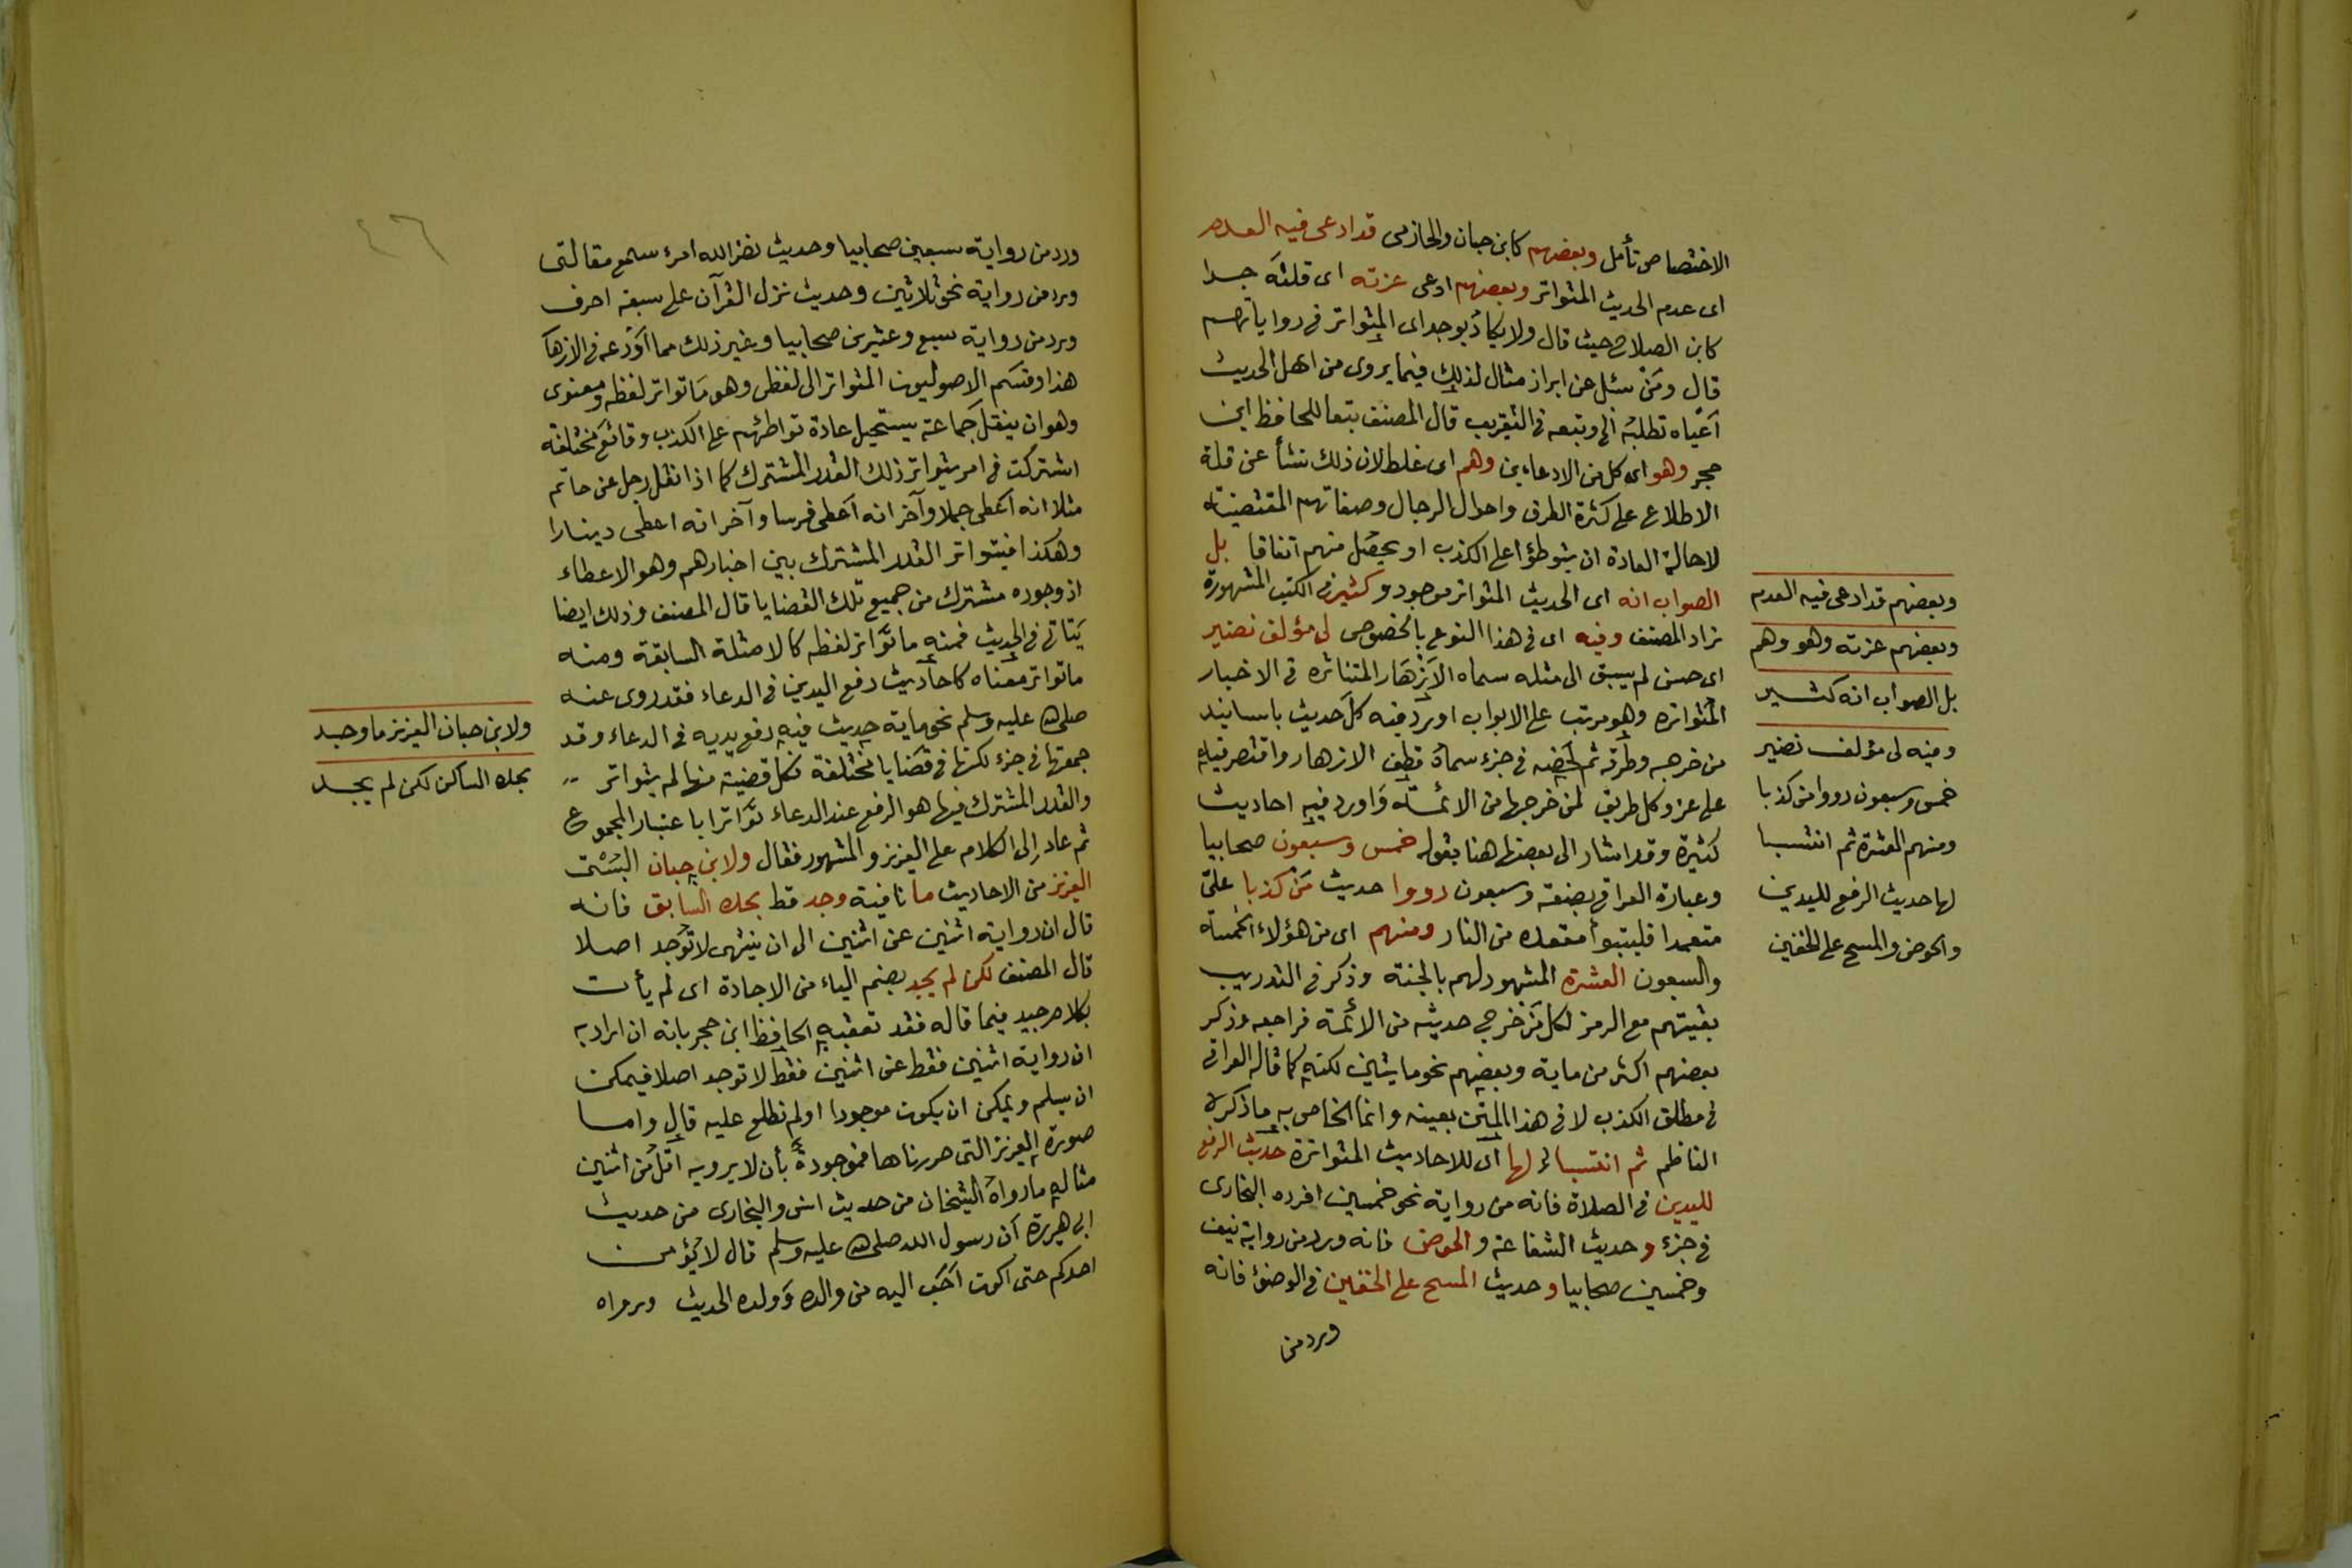 الاختصاص تأمل وبعضهم كابن حبان والحازمى قد ادعى فيه العدم
اى عدم الحديث المتواتر وبعضهم ادعى عزته اى قلته جدا
كابن الصلاح حيث قال ولا يكاد يوجد اى المتواتر فى رواياتهم
قال ومن سئل عن ابراز مثال لذلك فيما يروى من اهل الحديث
اعياه تطلبه الخ وتبعه فى التقريب قال المصنف تبعا للحافظ ابن
حجر وهو اى كل من الادعاءين وهم اى غلط لان ذلك نشأ عن قلة
الاطلاع على كثرة الطرق واحوال الرجال وصفاتهم المقتضية
لاحالة العادة ان يتوطؤا على الكذب او يحصل منهم اتفاقا بل
الصواب انه اى الحديث المتواتر موجود وكثير فى الكتب المشهورة
زاد المصنف وفيه اى فى هذا النوع بالخصوص لى مؤلف نضير
اى حسن لم يسبق الى مثله سماه الازهار المتناثره فى الاخبار
المتواتره وهو مرتب على الابواب اورد فيه كل حديث باسانيد
من خرجه وطرقه ثم لخصه فى جزء سماه قطف الازهار واقتصر فيه
على عزو كل طريق لمن خرجها من الائمة واورد فيه احاديث
كثيرة وقد اشار الى بعضها هنا بقوله خمس وسبعون صحابيا
وعبارة العراقى بضعة وسبعون رووا حديث من كذبا علىّ
متعمدا فليتبوأ مقعده من النار ومنهم اى من هؤلاء الخمسة
والسبعون العشرة المشهود لهم بالجنة وذكر فى التدريب
بقيتهم مع الرمز لكل من خرج حديثه من الائمة فراجعه وذكر
بعضهم اكثر من ماية وبعضهم نحو مايتين لكنه كما قاله العراقى
فى مطلق الكذب لا فى هذا المتن بعينه وانما الخاص به ما ذكره
الناظم ثم انتسبا لها اى للاحاديث المتواترة حديث الرفع
لليدين فى الصلاة فانه من رواية نحو خمسين افرده البخارى
فى جزء وحديث الشفاعة والحوض فانه ورد من رواية نيف
وخمسين صحابيا وحديث المسح على الخفين فى الوضوء فانه
ورد من
وبعضهم قد ادعى فيه العدم
وبعضهم عزته وهو وهم
بل الصواب انه كثير
وفيه لى مؤلف نضير
خمس وسبعون رووا من كذبا
ومنهم العشرة ثم انتسبا
لها حديث الرفع لليدين
والحوض والمسح على الخفين
٤٦
ورد من رواية سبعين صحابيا وحديث نضر الله امرء سمع مقالتى
ورد من رواية نحو ثلاثين وحديث نزل القرآن على سبعة احرف
ورد من رواية سبع وعشرين صحابيا وغير ذلك مما اودعه فى الازهار
هذا وقسم الاصوليون المتواتر الى لفظى وهو ما تواتر لفظه ومعنوى
وهو ان ينقل جماعة يستحيل عادة تواطئهم على الكذب وقائع مختلفة
اشتركت فى امر يتواتر ذلك القدر المشترك كما اذا نقل رجل عن حاتم
مثلا انه اعطى جملا وآخر انه اعطى فرسا وآخر انه اعطى دينارا
وهكذا فيتواتر القدر المشترك بين اخبارهم وهو الاعطاء
اذ وجوده مشترك من جميع تلك القضايا قال المصنف وذلك ايضا
يتاتى فى الحديث فمنه ما تواتر لفظه كالامثلة السابقة ومنه
ما تواتر معناه كاحاديث رفع اليدين فى الدعاء فقد روى عنه
صلى الله عليه وسلم نحو ماية حديث فيه رفع يديه فى الدعاء وقد
جمعتها فى جزء لكنها فى قضايا مختلفة فكل قضية منها لم يتواتر
والقدر المشترك فيها هو الرفع عند الدعاء تواترا باعتبار المجموع
ثم عاد الى الكلام على العزيز والمشهور فقال ولابن حبان البستى
العزيز من الاحاديث ما نافية وجد قط بحده السابق فانه
قال ان رواية اثنين عن اثنين الى ان ينتهى لا توجد اصلا
قال المصنف لكن لم يجد بضم الياء من الاجادة اى لم يأت
بكلام جيد فيما قاله فقد تعقبه الحافظ ابن حجر بانه ان اراد به
ان رواية اثنين فقط عن اثنين فقط لا توجد اصلا فيمكن
ان يسلم ويمكن ان يكون موجودا ولم نطلع عليه قال واما
صورة العزيز التى حررناها فموجودة بأن لا يرويه اقل من اثنين
مثاله ما رواه الشيخان من حديث انس والبخارى من حديث
ابى هريرة ان رسول الله صلى الله عليه وسلم قال لا يؤمن
احدكم حتى اكون احب اليه من والده وولده الحديث ورواه
ولابن حبان العزيز ما وجد
بحده السابق لكن لم يجد